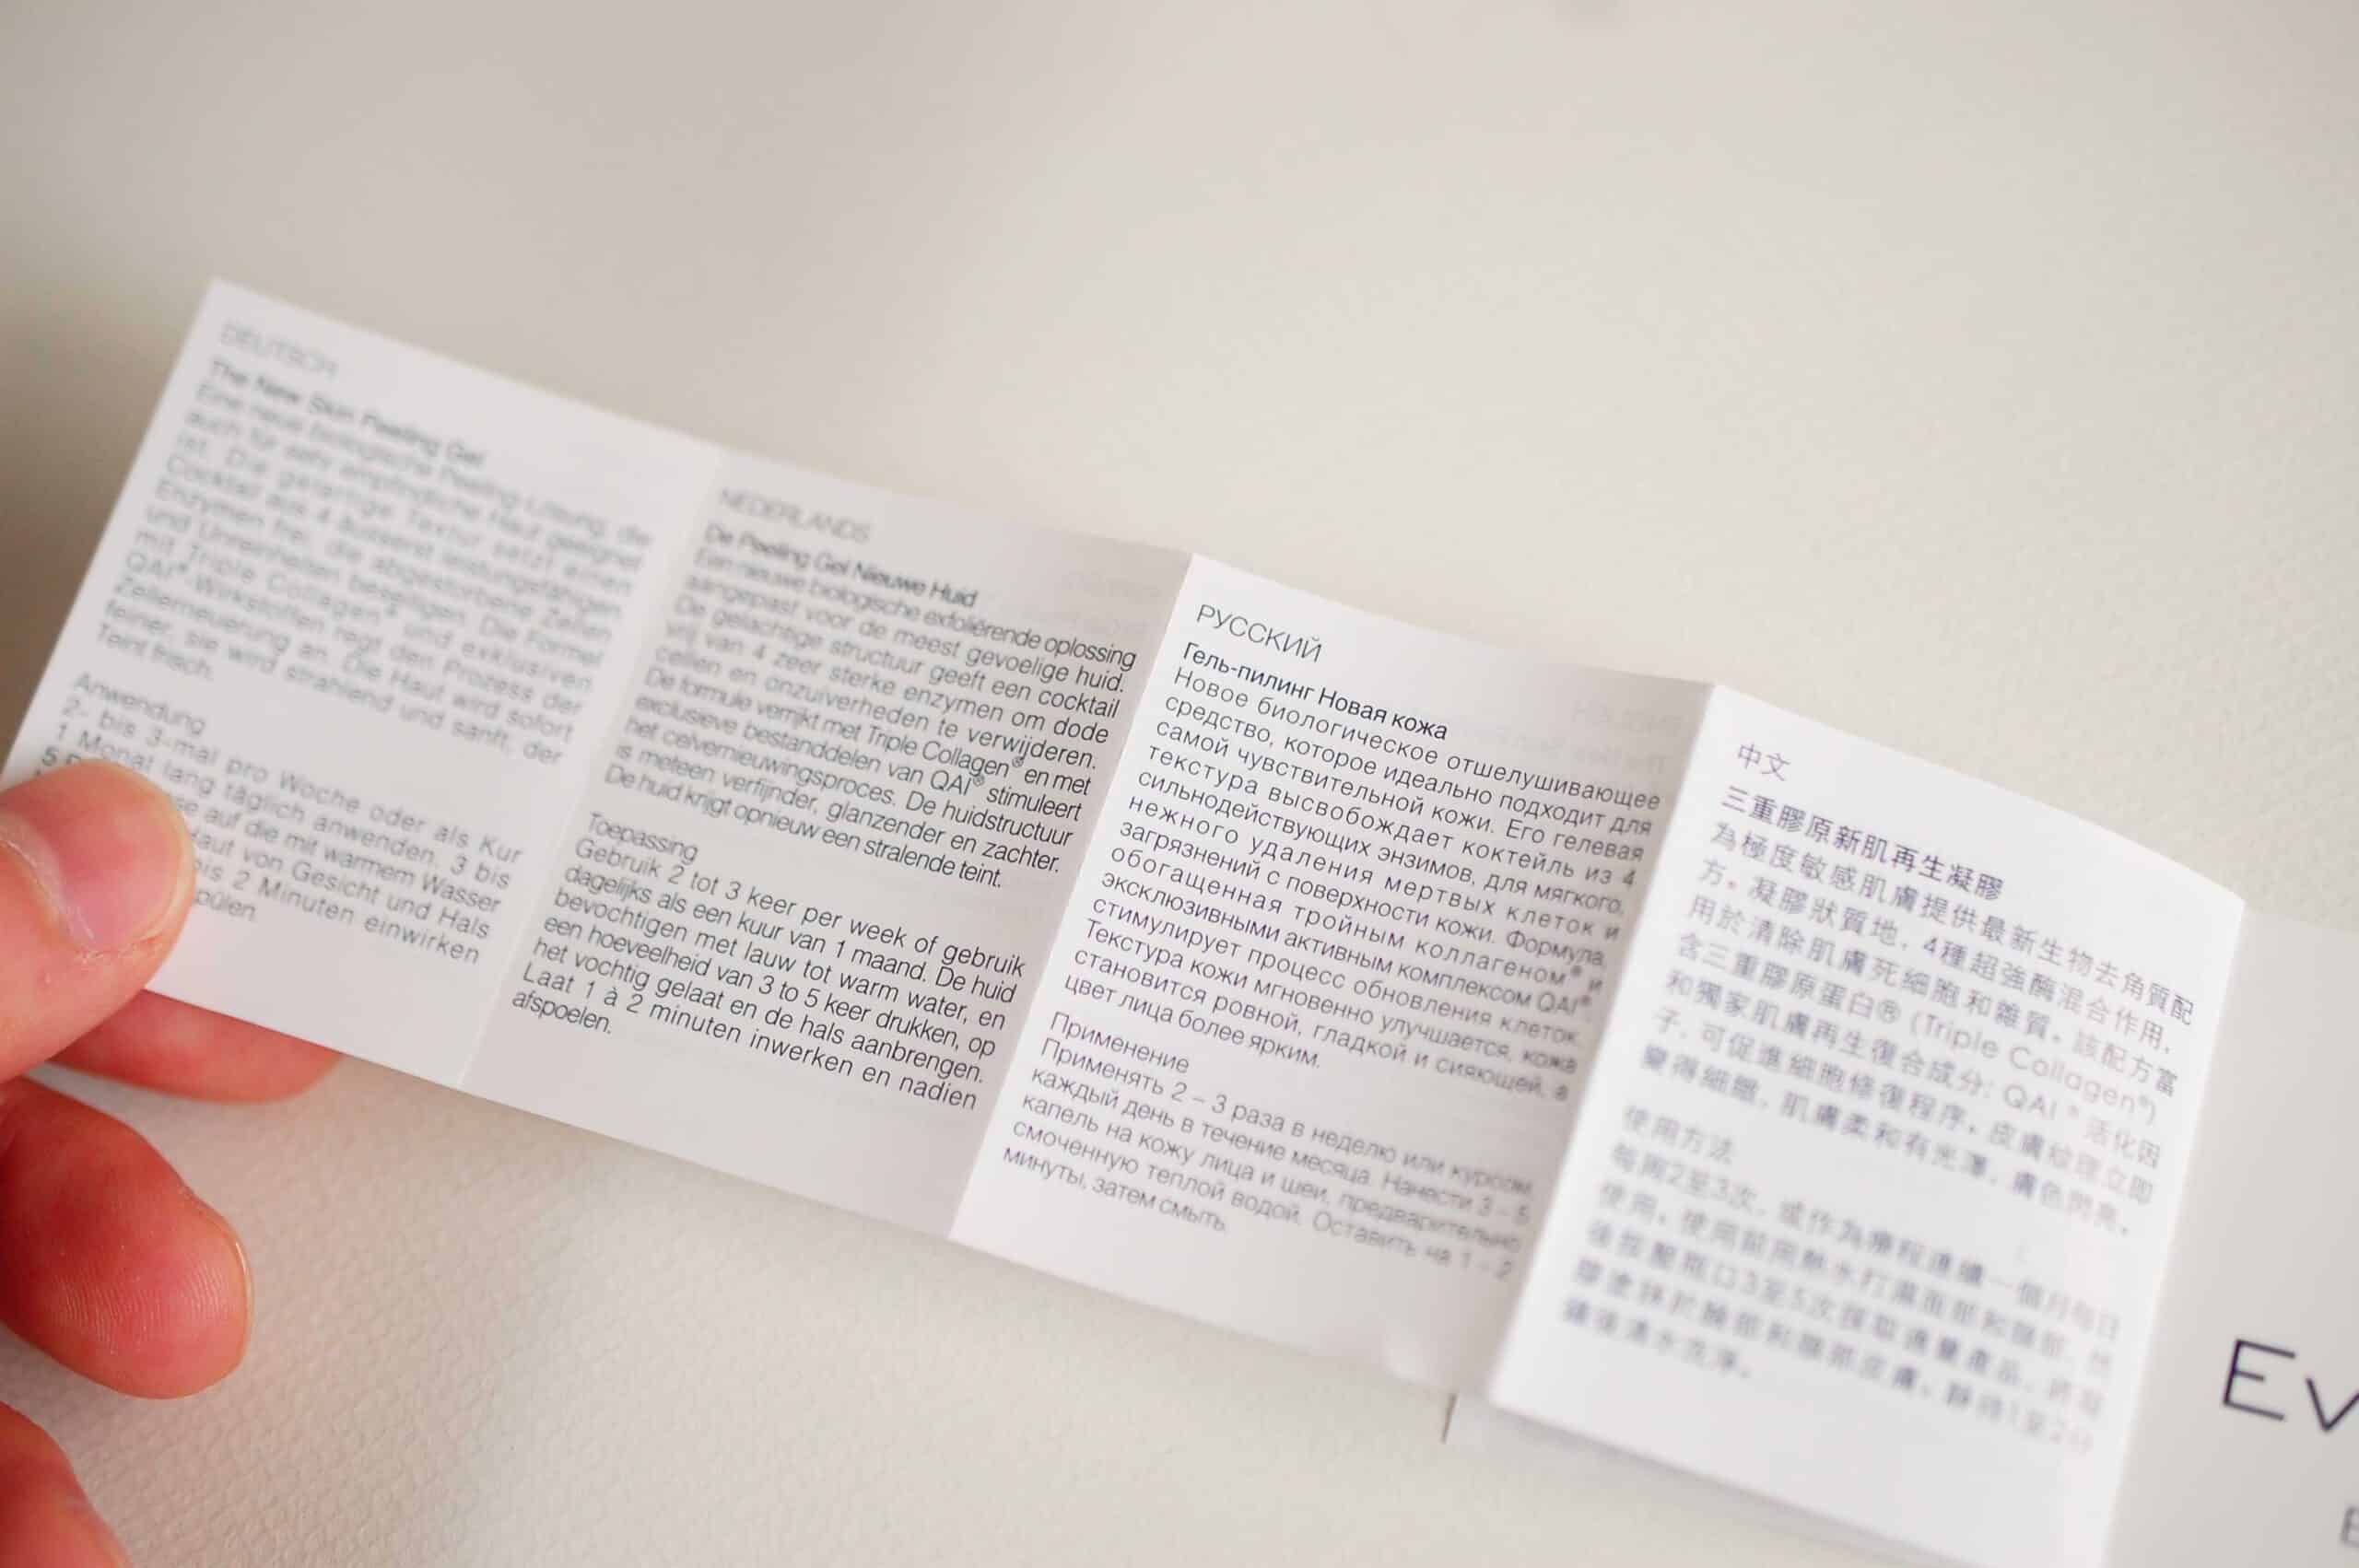 DEUTSCH
The New Skin Peeling Gel
Eine neue biologische Peeling-Lösung, die
auch für sehr empfindliche Haut geeignet
ist. Die gelartige Textur setzt einen
Cocktail aus 4 äusserst leistungsfähigen
Enzymen frei, die abgestorbene Zellen
und Unreinheiten beseitigen. Die Formel
mit Triple Collagen® und exklusiven
QAI®-Wirkstoffen regt den Prozess der
Zellerneuerung an. Die Haut wird sofort
feiner, sie wird strahlend und sanft, der
Teint frisch.
Anwendung
2- bis 3-mal pro Woche oder als Kur
1 Monat lang täglich anwenden. 3 bis
5
auf die mit warmem Wasser
Haut von Gesicht und Hals
bis 2 Minuten einwirken
NEDERLANDS
De Peeling Gel Nieuwe Huid
Een nieuwe biologische exfoliërende oplossing
aangepast voor de meest gevoelige huid.
De gelachtige structuur geeft een cocktail
vrij van 4 zeer sterke enzymen om dode
cellen en onzuiverheden te verwijderen.
De formule verrijkt met Triple Collagen® en met
exclusieve bestanddelen van QAI® stimuleert
het celvernieuwingsproces. De huidstructuur
is meteen verfijnder, glanzender en zachter.
De huid krijgt opnieuw een stralende teint.
Toepassing
Gebruik 2 tot 3 keer per week of gebruik
dagelijks als een kuur van 1 maand. De huid
bevochtigen met lauw tot warm water, en
een hoeveelheid van 3 to 5 keer drukken, op
het vochtig gelaat en de hals aanbrengen.
Laat 1 à 2 minuten inwerken en nadien
afspoelen.
РУССКИЙ
Гель-пилинг Новая кожа
Новое биологическое отшелушивающее
средство, которое идеально подходит для
самой чувствительной кожи. Его гелевая
текстура высвобождает коктейль из 4
сильнодействующих энзимов, для мягкого,
нежного удаления мертвых клеток и
загрязнений с поверхности кожи. Формула,
обогащенная тройным коллагеном® и
эксклюзивными активным комплексом QAI®,
стимулирует процесс обновления клеток.
Текстура кожи мгновенно улучшается, кожа
становится ровной, гладкой и сияющей, а
цвет лица более ярким.
Применение
Применять 2 – 3 раза в неделю или курсом
каждый день в течение месяца. Нанести 3 - 5
капель на кожу лица и шеи, предварительно
смоченную теплой водой. Оставить на 1 - 2
минуты, затем смыть.
中文
三重膠原新肌再生凝膠
為極度敏感肌膚提供最新生物去角質配
方。凝膠狀質地，4種超強酶混合作用，
用於清除肌膚死細胞和雜質。該配方富
含三重膠原蛋白® (Triple Collagen®)
和獨家肌膚再生復合成分: QAI® 活化因
子，可促進細胞修復程序。皮膚紋理立即
變得細緻，肌膚柔和有光澤，膚色閃亮。
使用方法
每周2至3次，或作為療程連續一個月每日
使用。使用前用熱水打濕面部和頸部，然
後按壓瓶口3至5次採取適量產品，將凝
膠塗抹於臉部和頸部皮膚，靜待1至2分
鐘後清水洗淨。
Ev